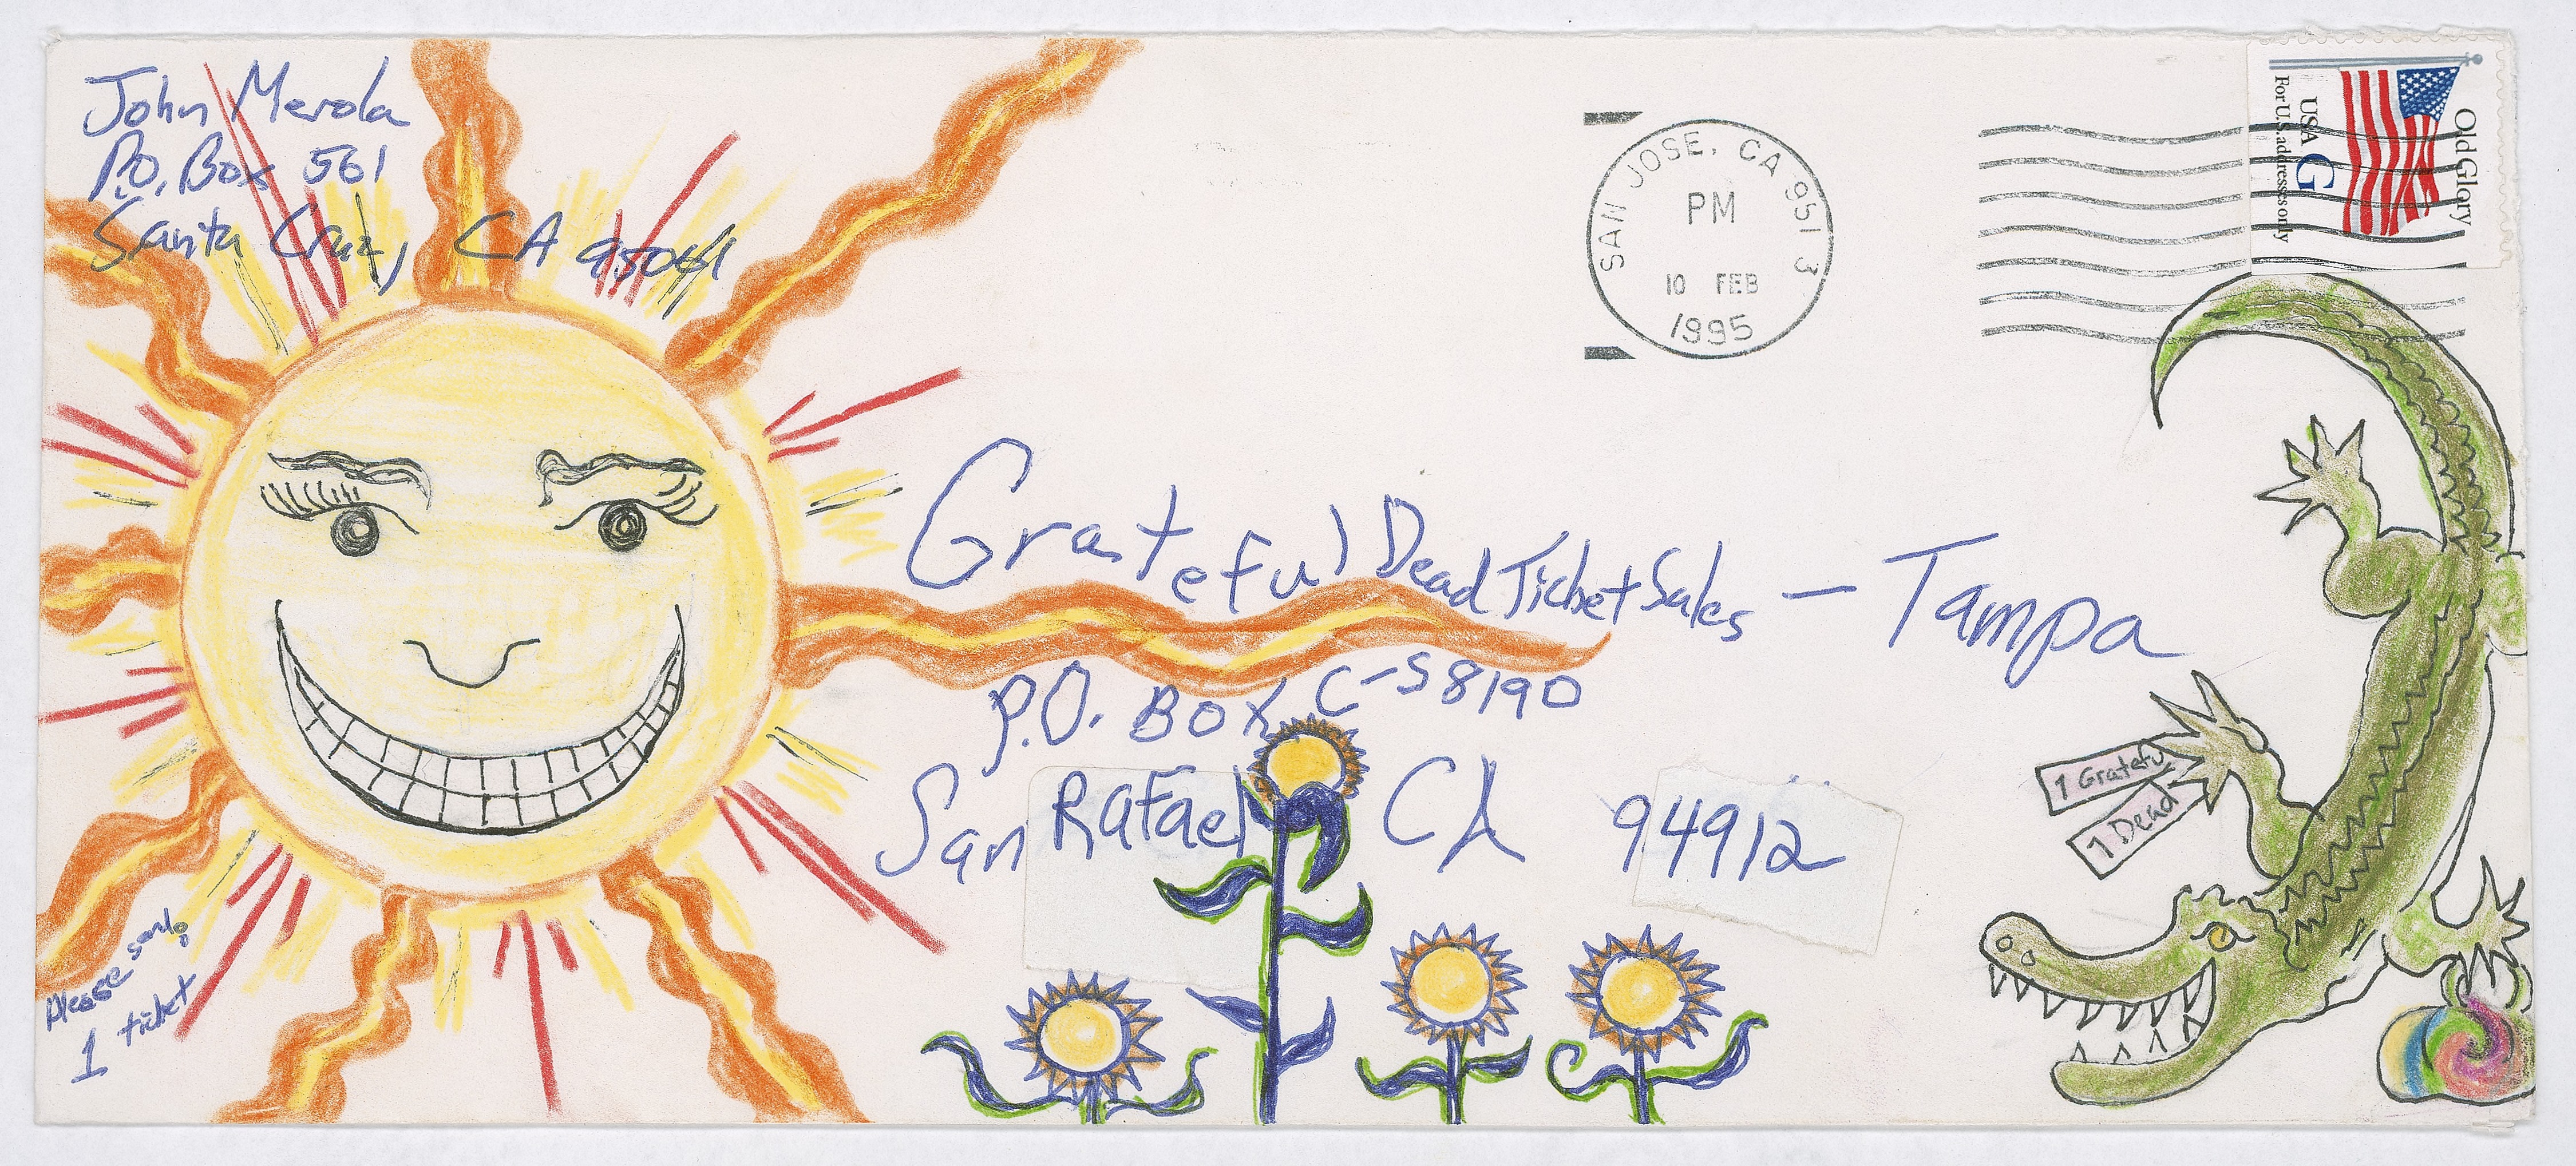 John Merola
P.O. Box 561
Santa Cruz, CA 95061
SAN JOSE, CA 951 3
PM
10 FEB
1995
Old Glory
USA G
For U.S. addresses only
Grateful Dead Ticket Sales — Tampa
P.O. Box C-S8190
San Rafael CA 94912
1 Grateful
1 Dead
please send:
1 ticket